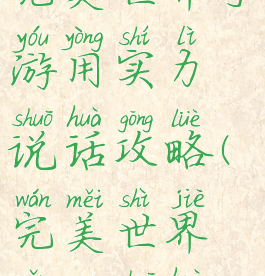 yóu yòng shí lì
游用实力
shuō huà gōng lüè
说话攻略(
wán měi shì jiè
完美世界